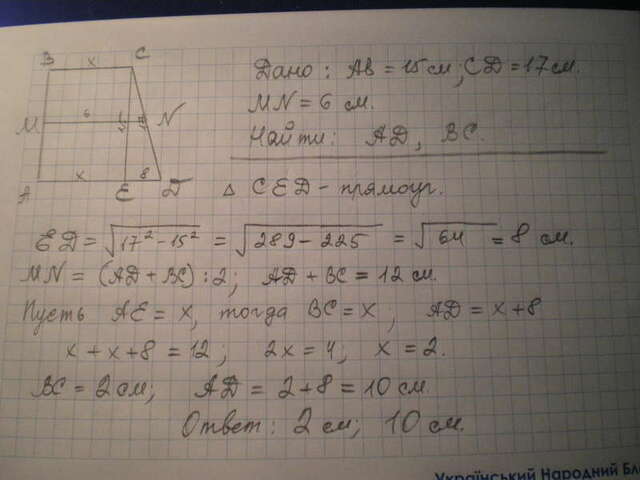 B x C
Дано: AB = 15 см; CD = 17 см.
M 6 N
MN = 6 см.
Найти: AD, BC.
x 8
A E D
Δ CED - прямоуг.
ED = √17² - 15² = √289 - 225 = √64 = 8 см.
MN = (AD + BC) : 2; AD + BC = 12 см.
Пусть AE = x, тогда BC = x; AD = x + 8
x + x + 8 = 12, 2x = 4; x = 2.
BC = 2 см; AD = 2 + 8 = 10 см.
Ответ: 2 см; 10 см.
Український Народний